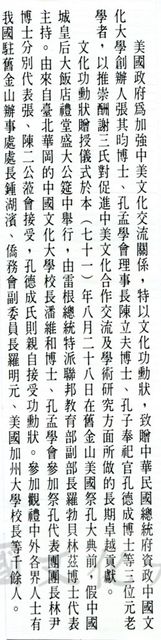 美國政府爲加強中美文化交流關係，特以文化功勳狀，致贈中華民國總統府資政中國文
化大學創辦人張其昀博士、孔孟學會理事長陳立夫博士、孔子奉祀官孔德成博士等三位元老
學者，以推崇酬謝三氏對促進中美文化合作交流及學術研究方面所做的長期卓越貢獻。
文化功勳狀贈授儀式於本（七十一）年八月二十八日在舊金山美國祭孔大典前，假中國
城皇后大飯店禮堂盛大公筵中舉行，由雷根總統特派聯邦教育部副部長羅勃貝林茲博士代表
主持。由來自臺北華岡的中國文化大學校長潘維和博士、孔孟學會參加祭孔代表團團長林尹
博士分別代表張、陳二公蒞會接受，孔德成氏則親自接受功勳狀。參加觀禮中外各界人士有
我國駐舊金山辦事處處長鍾湖濱、僑務會副委員長羅明元、美國加州大學校長等千餘人。